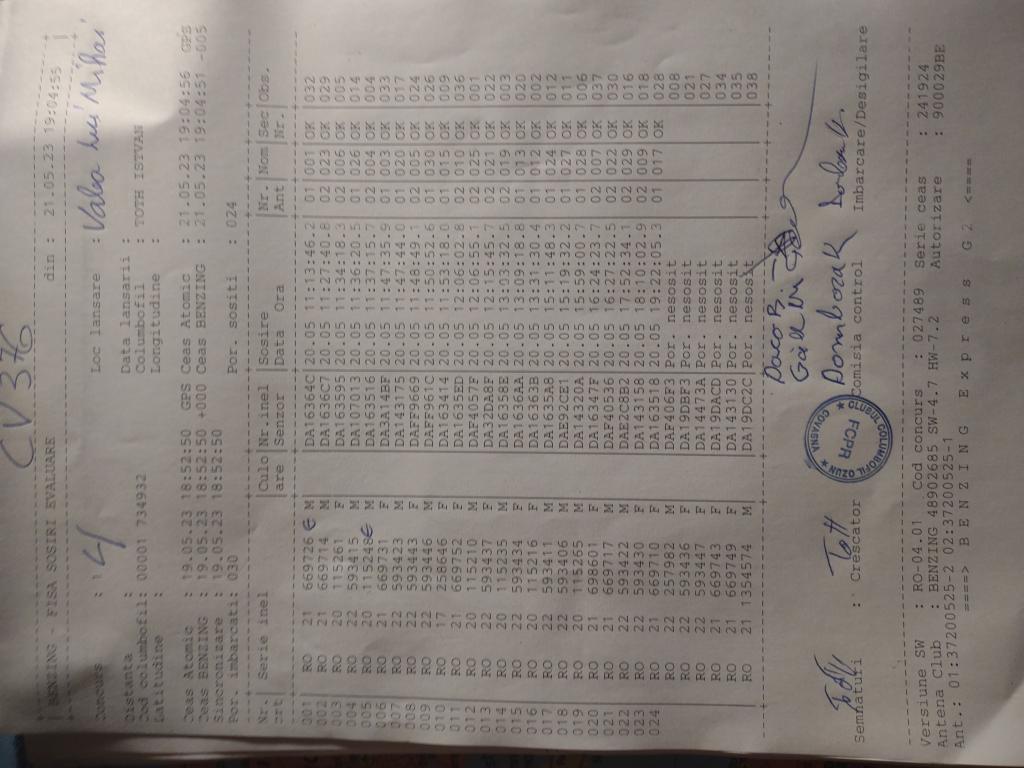 CV 376
BENZING - FISA SOSIRI EVALUARE din : 21.05.23 19:04:55
Concurs : 4 Loc lansare : Valea lui Mihai
Distanta : Data lansarii :
Cod columbofil: 00001 734932 Columbofil : TOTH ISTVAN
Latitudine : Longitudine :
Ceas Atomic : 19.05.23 18:52:50 GPS Ceas Atomic : 21.05.23 19:04:56 GPS
Ceas BENZING : 19.05.23 18:52:50 +000 Ceas BENZING : 21.05.23 19:04:51 -005
Sincronizare : 19.05.23 18:52:50
Por. imbarcati: 030 Por. sositi : 024
Nr. | Serie inel |Culo|Nr.inel |Sosire |Nr. |Nom|Sec|Obs.
crt| |are |Senzor |Data Ora |Ant |Nr.
001 RO 21 669726 € M DA16364C 20.05 11:13:46.2 01 001 OK 032
002 RO 21 669714 M DA1636C7 20.05 11:27:40.8 02 023 OK 029
003 RO 20 115261 F DA163595 20.05 11:34:18.3 02 006 OK 005
004 RO 22 593415 M DA107013 20.05 11:36:20.5 01 026 OK 014
005 RO 20 115248 € M DA163516 20.05 11:37:15.7 02 004 OK 004
006 RO 21 669731 F DA3A14BF 20.05 11:47:35.9 01 003 OK 033
007 RO 22 593423 M DA143175 20.05 11:47:44.0 01 020 OK 017
008 RO 22 593443 F DAFF9669 20.05 11:48:49.1 02 005 OK 024
009 RO 22 593446 M DAFF961C 20.05 11:50:52.6 01 030 OK 026
010 RO 17 258646 F DA163414 20.05 11:53:18.0 01 015 OK 009
011 RO 21 669752 F DA1635ED 20.05 12:06:02.8 02 010 OK 036
012 RO 20 115210 M DAF4057F 20.05 12:06:55.1 02 025 OK 001
013 RO 22 593437 F DA32DA8F 20.05 12:15:55.7 02 021 OK 022
014 RO 20 115235 M DA16358E 20.05 13:03:32.5 02 019 OK 003
015 RO 22 593434 F DA1636AA 20.05 13:09:18.8 01 013 OK 020
016 RO 20 115216 F DA16363B 20.05 13:11:30.4 01 012 OK 002
017 RO 22 593411 M DA1635A8 20.05 15:11:48.3 01 024 OK 012
018 RO 22 593406 M DAE92CE1 20.05 15:19:32.2 01 027 OK 011
019 RO 20 115265 M DA14320A 20.05 15:59:00.7 01 028 OK 006
020 RO 21 698601 F DA16347F 20.05 16:24:23.7 02 007 OK 037
021 RO 21 669717 M DAF40536 20.05 17:27:22.5 02 022 OK 030
022 RO 22 593422 M DAE2C8B2 20.05 17:52:34.1 02 029 OK 016
023 RO 22 593430 F DA143158 20.05 18:10:02.9 02 009 OK 018
024 RO 21 669710 M DA163518 20.05 19:22:05.3 01 017 OK 028
RO 22 257982 M DAF406F3 Por. nesosit 008
RO 22 593436 F DA19DBF3 Por. nesosit 021
RO 22 593447 F DA14473A Por. nesosit 027
RO 21 669743 F DA19DACD Por. nesosit 034
RO 21 669749 F DA143130 Por. nesosit 035
RO 21 1354574 M DA19DC2C Por. nesosit 038
CLUBUL COLUMBOFIL OZUN
FCPR
COVASNA
Semnaturi : Crescator Comisia control Imbarcare/Desigilare
Versiune SW : RO-04.01 Cod concurs : 027489 Serie ceas : 241924
Antena Club : BENZING 48902685 SW-4.7 HW-7.2 Autorizare : 900029BE
Ant.: 01:37200525-2 02:37200525-1
====> B E N Z I N G E x p r e s s G 2 <====